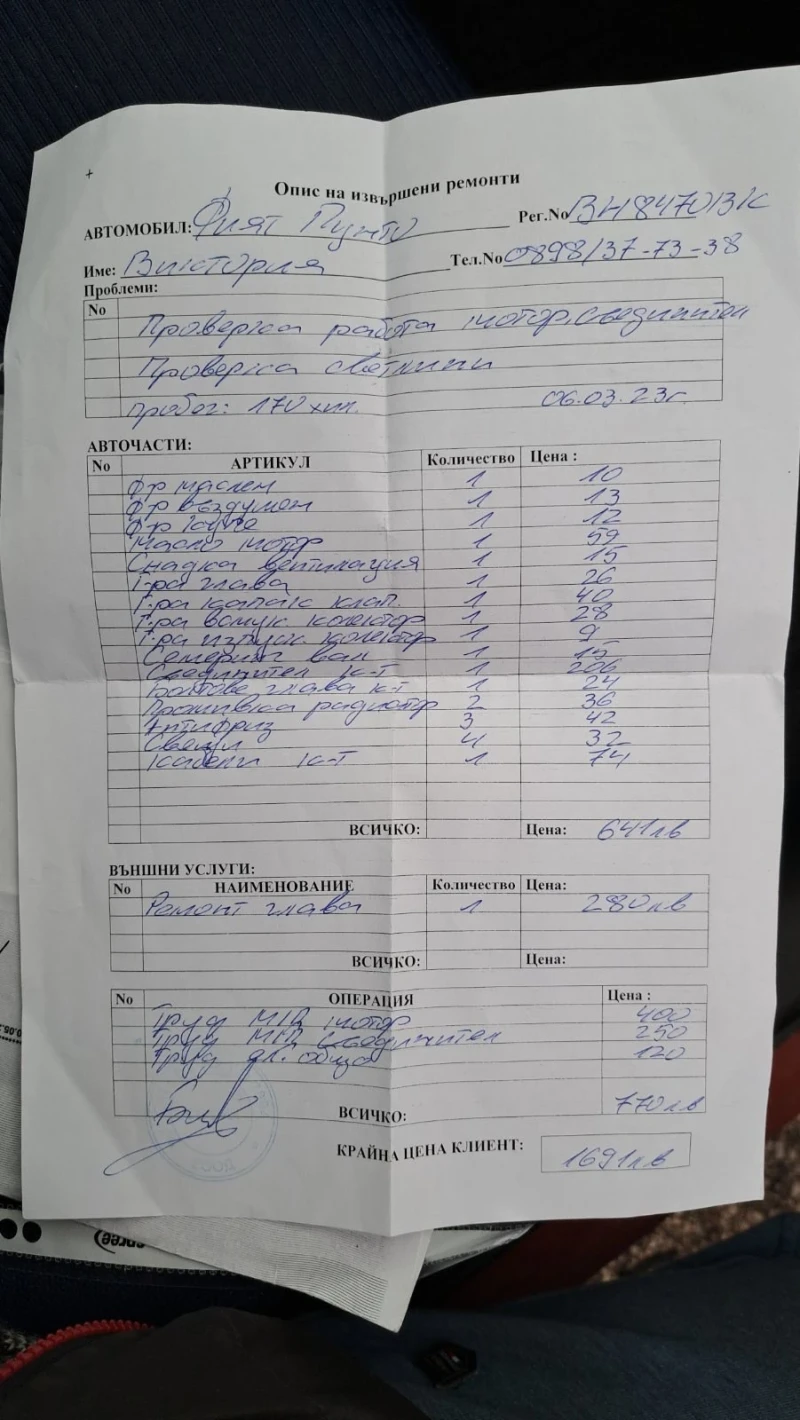 Опис на извършени ремонти
АВТОМОБИЛ: Фият Пунто Рег.No ВН8470ВК
Име: Виктория Тел.No 0898/37-73-38
Проблеми:
No
Проверка работа мотор, съединител
Проверка светлини
пробег: 170 хил. 06.03.23г.
АВТОЧАСТИ:
No АРТИКУЛ Количество Цена :
ф-р маслен 1 10
ф-р въздушен 1 13
ф-р купе 1 12
Масло мотор 1 59
Снадка вентилация 1 15
Г-ра глава 1 26
Г-ра капак клап. 1 40
Г-ра всмук. колектор 1 28
Г-ра изпуск. колектор 1 9
Семеринг вал 1 15
Съединител к-т 1 206
Болтове глава к-т 1 24
Промивка радиатор 2 36
Антифриз 3 42
Свещи 4 32
Кабели к-т 1 74
ВСИЧКО: Цена: 641лв
ВЪНШНИ УСЛУГИ:
No НАИМЕНОВАНИЕ Количество Цена:
Ремонт глава 1 280лв
ВСИЧКО: Цена:
No ОПЕРАЦИЯ Цена :
Труд М/Д мотор 400
Труд М/Д съединител 250
Труд ел. общо 120
ВСИЧКО: 770лв
КРАЙНА ЦЕНА КЛИЕНТ: 1691лв